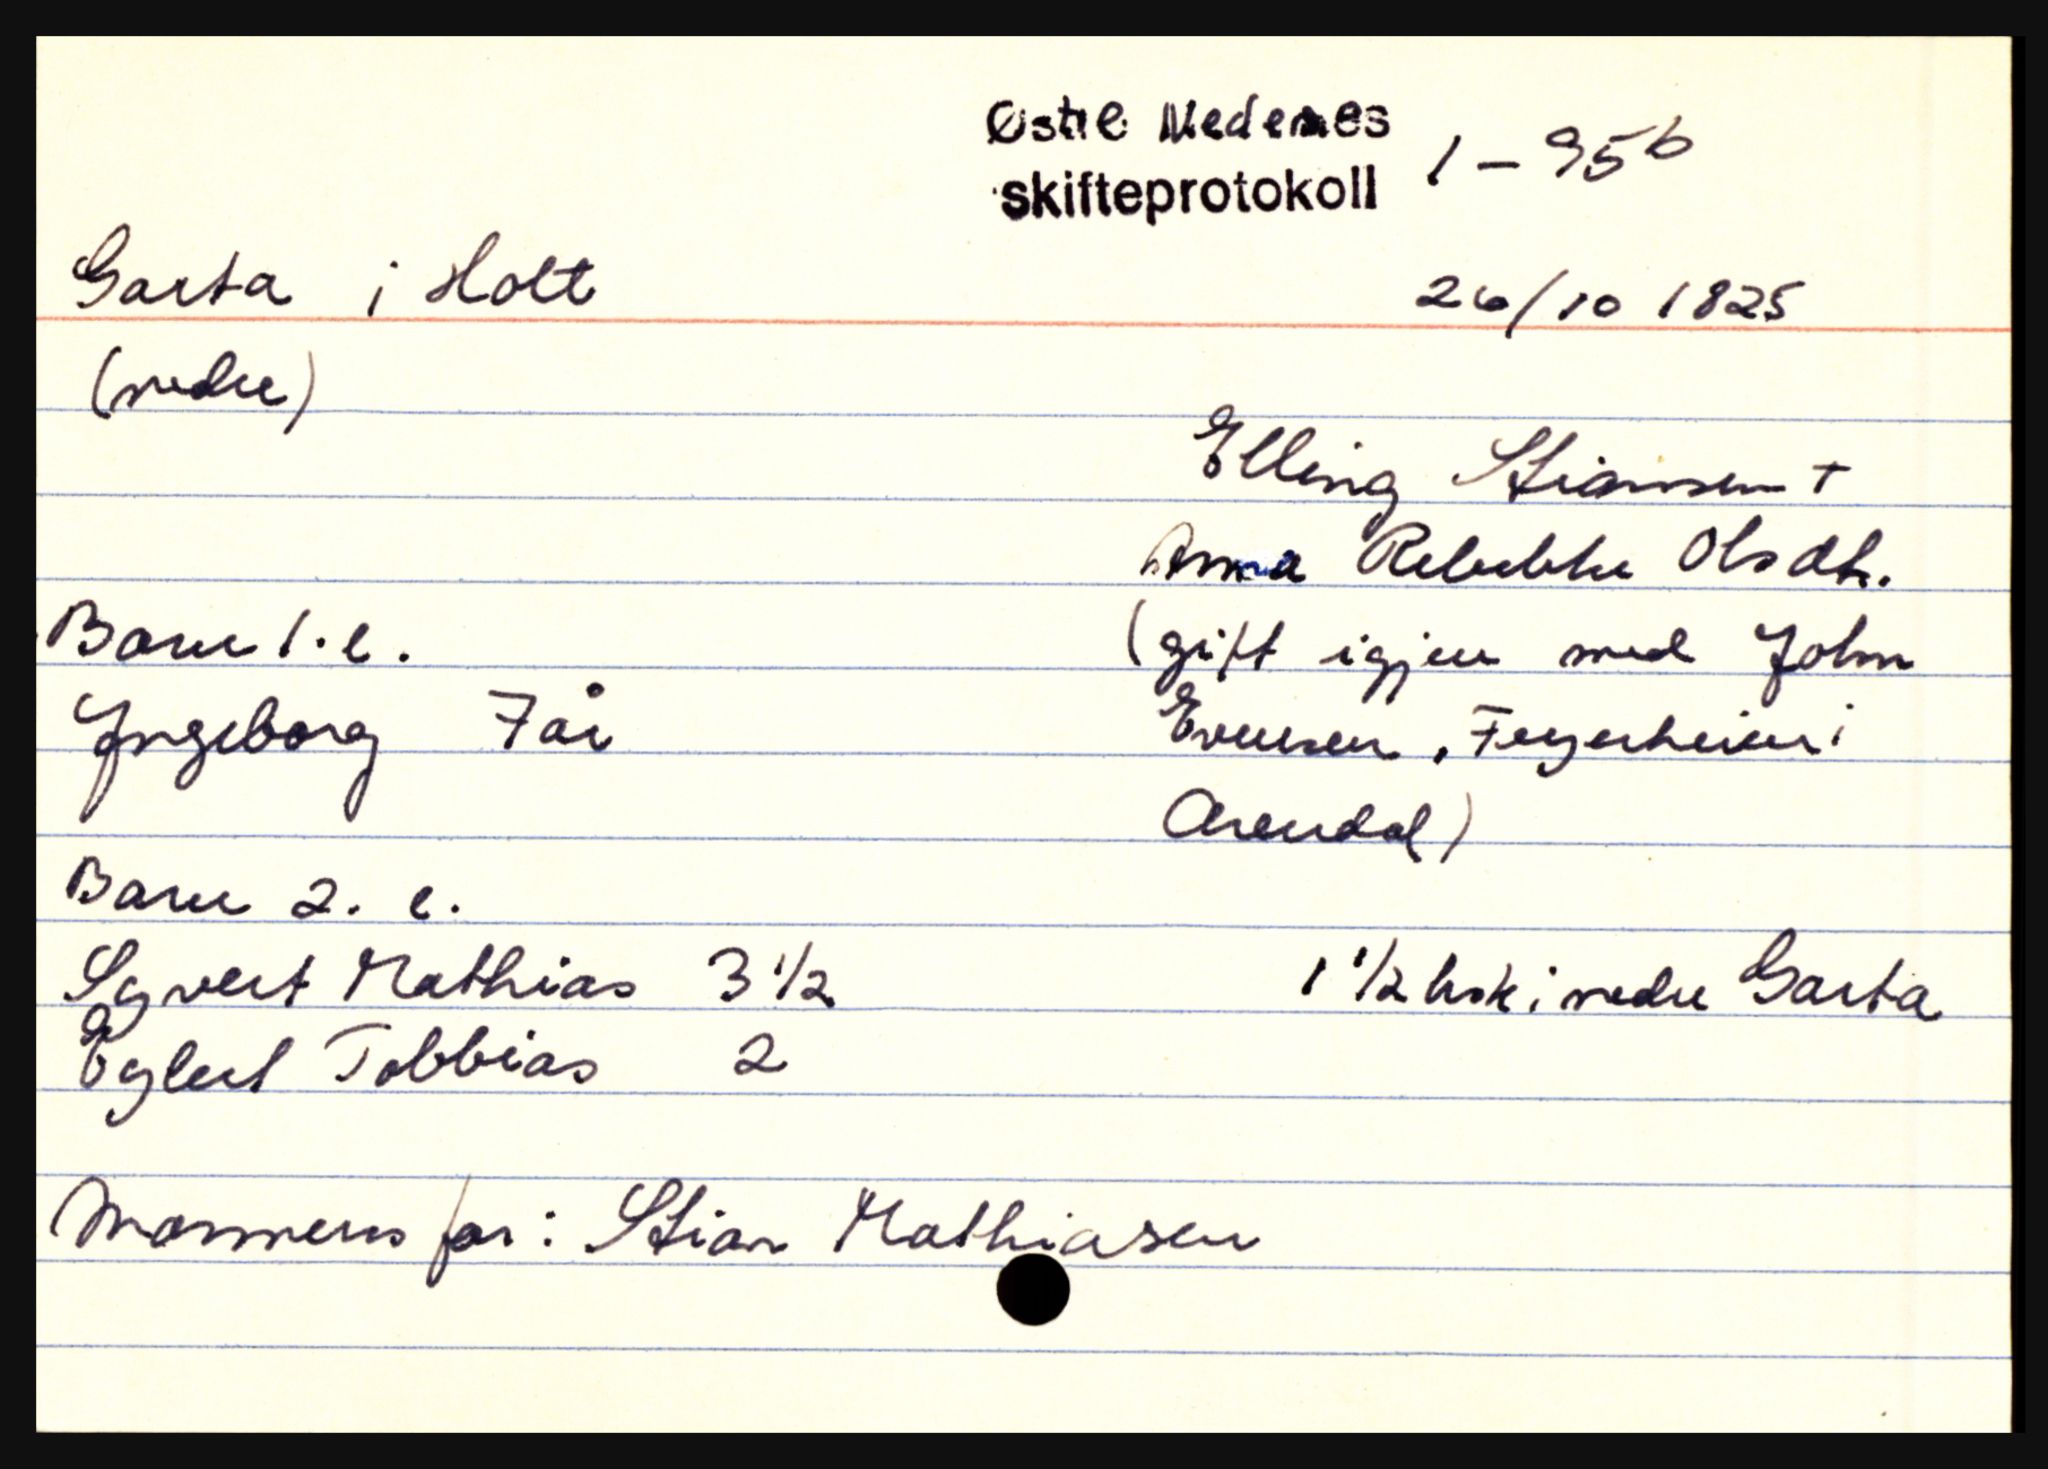 Østre Nedenes
skifteprotokoll 1 - 95b
Garta i Holt 26/10 1825
(nedre)
Elling Stiansen +
Anna Rebekke Olsdt.
Barn 1. e. (gift igjen med John
Ingeborg 7 år Evensen, i
Arendal)
Barn 2. e.
Syvert Mathias 3 1/2 1 1/2 hsk i nedre Garta
Eylert Tobbias 2
Mannens far: Stian Mathiasen